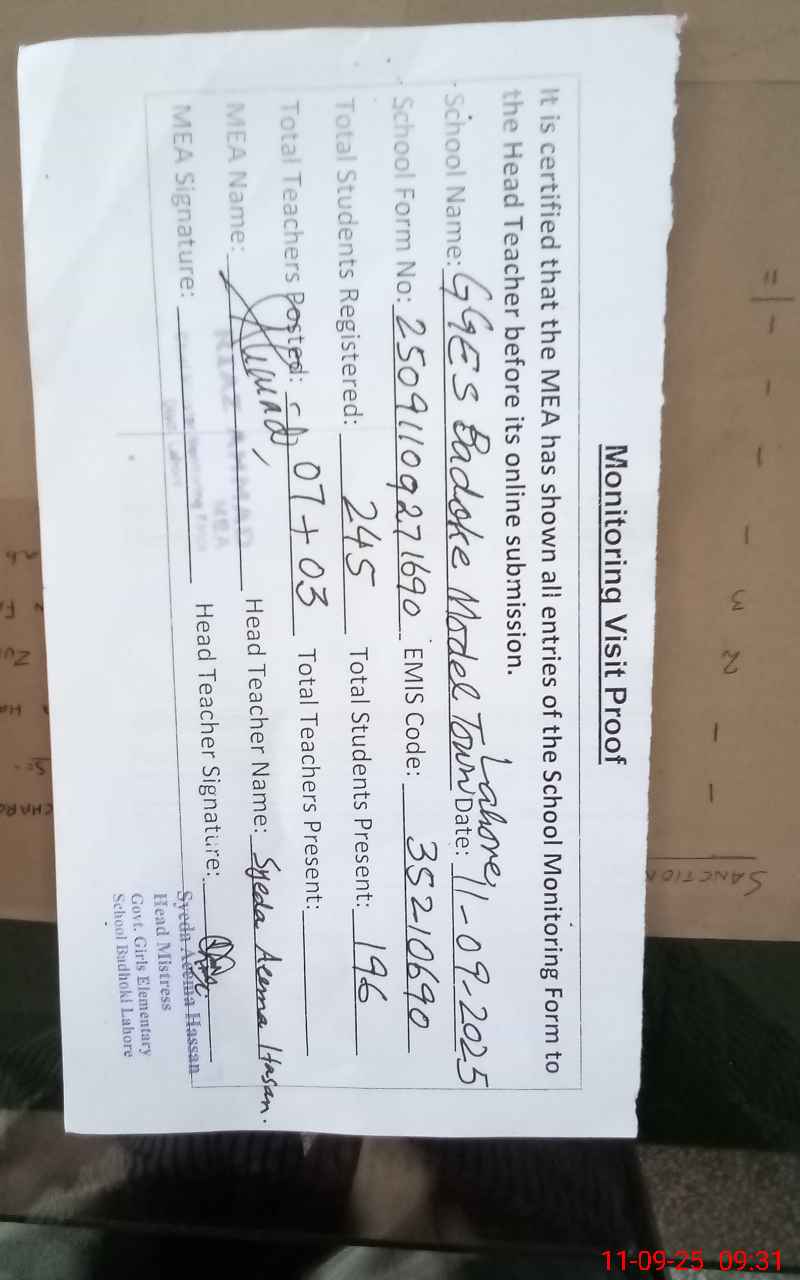 Monitoring Visit Proof
It is certified that the MEA has shown all entries of the School Monitoring Form to
the Head Teacher before its online submission.
School Name: GGES Badoke Model Town Lahore Date: 11-09-2025
School Form No: 25091109271690 EMIS Code: 35210690
Total Students Registered: 245 Total Students Present: 196
Total Teachers Posted: 07+03 Total Teachers Present:
MEA Name: Head Teacher Name: Syeda Aeema Hasan.
MEA Signature: Head Teacher Signature:
MEA
Syeda Aeema Hassan
Head Mistress
Govt. Girls Elementary
School Badhoki Lahore
SANCTION
3 2
11-09-25 09:31